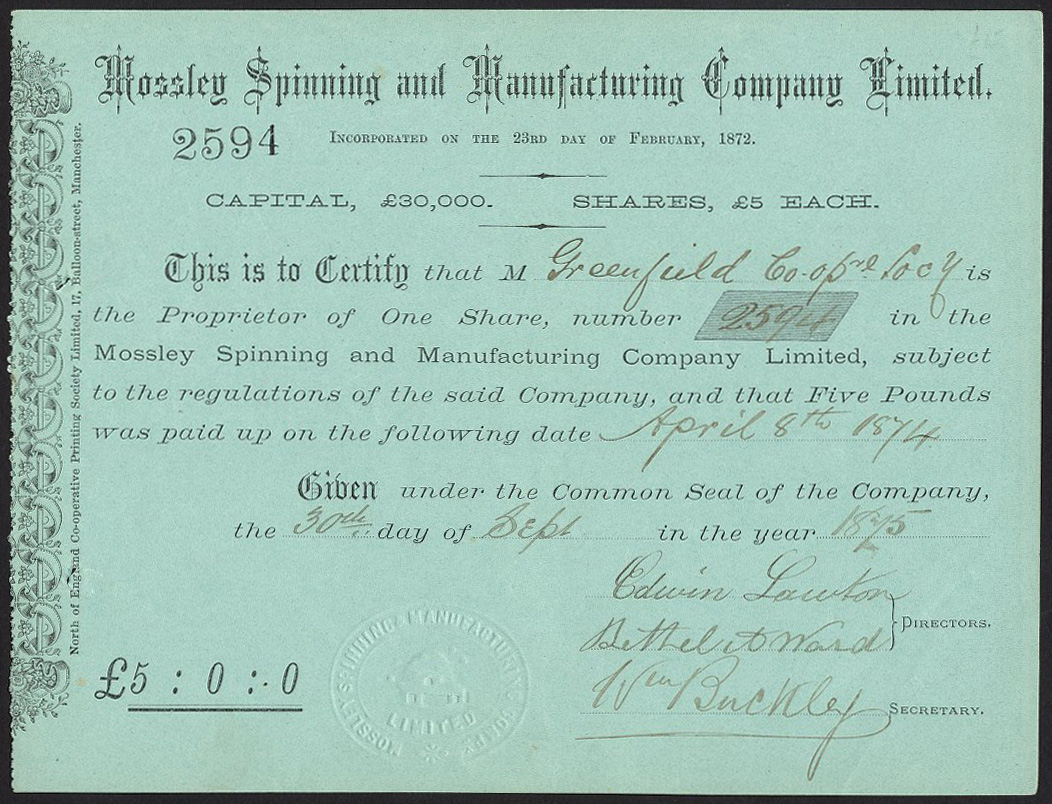 Mossley Spinning and Manufacturing Company Limited.
2594 INCORPORATED ON THE 23RD DAY OF FEBRUARY, 1872.
CAPITAL, £30,000. SHARES, £5 EACH.
This is to Certify that M Greenfield Co-opve Socy is
the Proprietor of One Share, number 2594 in the
Mossley Spinning and Manufacturing Company Limited, subject
to the regulations of the said Company, and that Five Pounds
was paid up on the following date April 8th 1874
Given under the Common Seal of the Company,
the 30th day of Sept in the year 1875
Edwin Lawton
Ward
DIRECTORS.
Wm Buckley SECRETARY.
£5 : 0 : 0
MOSSLEY SPINNING & MANUFACTURING COMPANY
LIMITED
North of England Co-operative Printing Society Limited, 17, Balloon-street, Manchester.